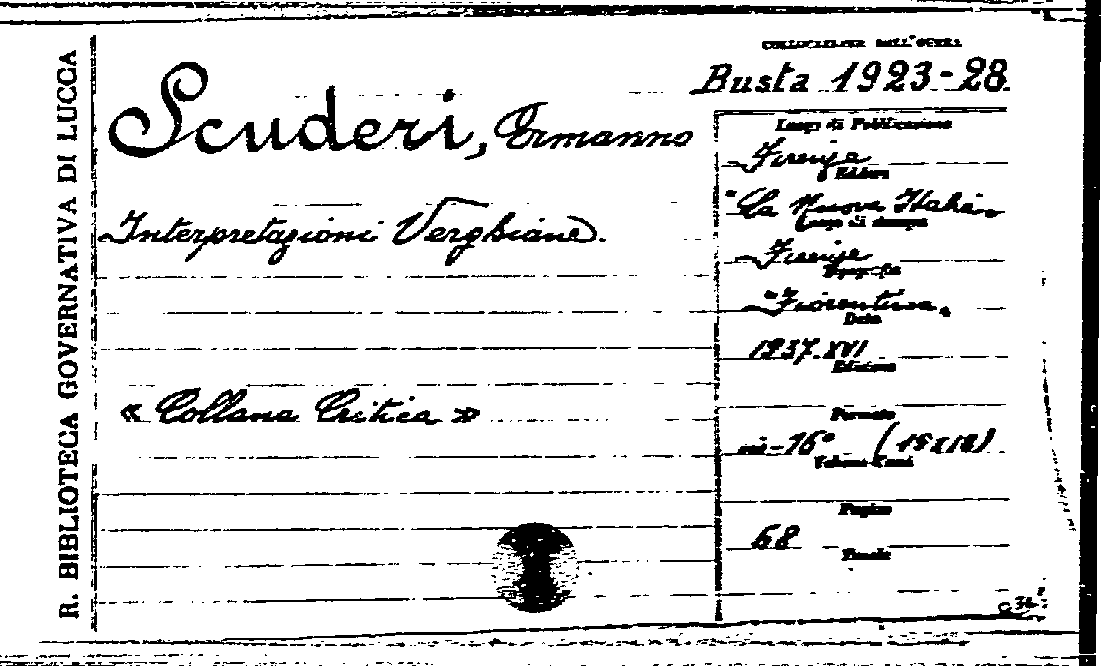 R. BIBLIOTECA GOVERNATIVA DI LUCCA
COLLOCAZIONE DELL'OPERA
Busta 1923-28
Scuderi, Ermanno
Interpretazioni Verghiane.
« Collana Critica »
Luogo di Pubblicazione
Firenze
Editore
"La Nuova Italia"
Luogo di stampa
Firenze
Tipografia
"Fiorentina"
Data
1937-XVI
Edizione
Formato
in-16° (
Pagine
68
Tavole